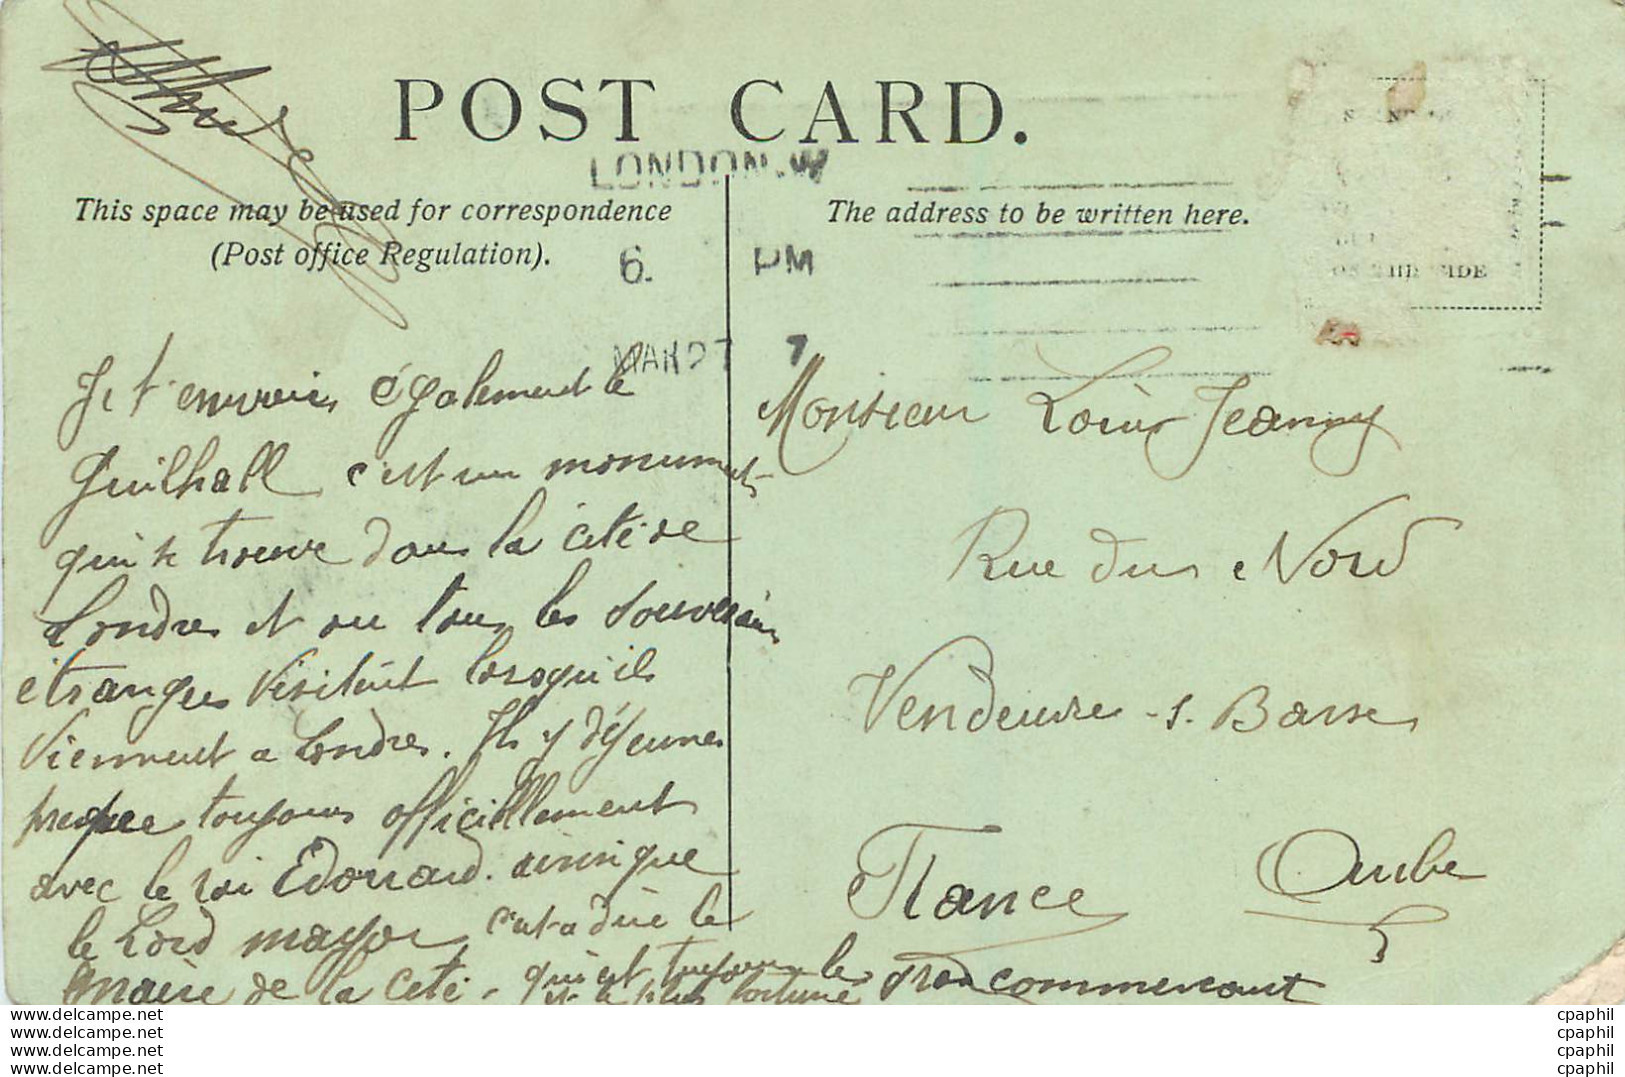 POST CARD.
LONDON.W
This space may be used for correspondence
(Post office Regulation).
The address to be written here.
6. PM
MAR 27 7
Je t'envoie également le
Guilhall c'est un monument
qui se trouve dans la cité de
Londres et ou tous les souverains
étrangers visitent lorsqu'ils
viennent a Londres. Ils y déjeunes
presque toujours officiellement
avec le roi Edouard. ainsi que
le Lord mayor c'est a dire le
maire de la cité. qui est toujours le grand commercant
et le plus fortuné
Monsieur Louis Jeanny
Rue du Nord
Vendeuvre - s. Barse
France Aube
www.delcampe.net cpaphil
www.delcampe.net cpaphil
www.delcampe.net cpaphil
www.delcampe.net cpaphil